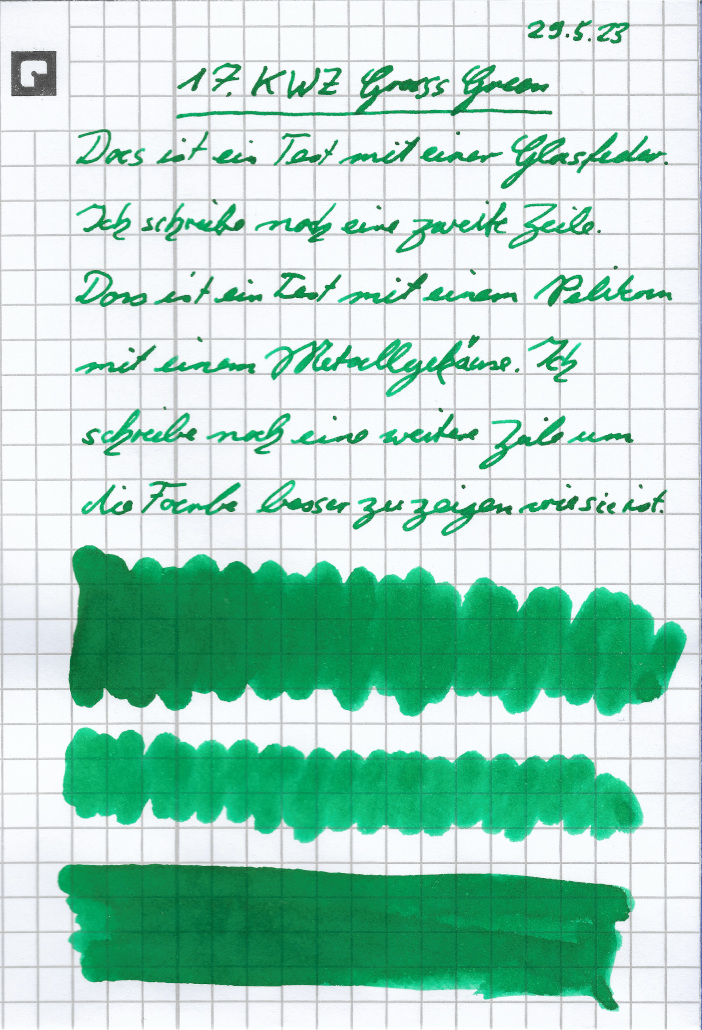 29.5.23
17. KWZ Grass Green
Das ist ein Test mit einer Glasfeder.
Ich schreibe noch eine zweite Zeile.
Das ist ein Test mit einem Pelikan
mit einem Metallgehäuse. Ich
schreibe noch eine weitere Zeile um
die Farbe besser zu zeigen wie sie ist.